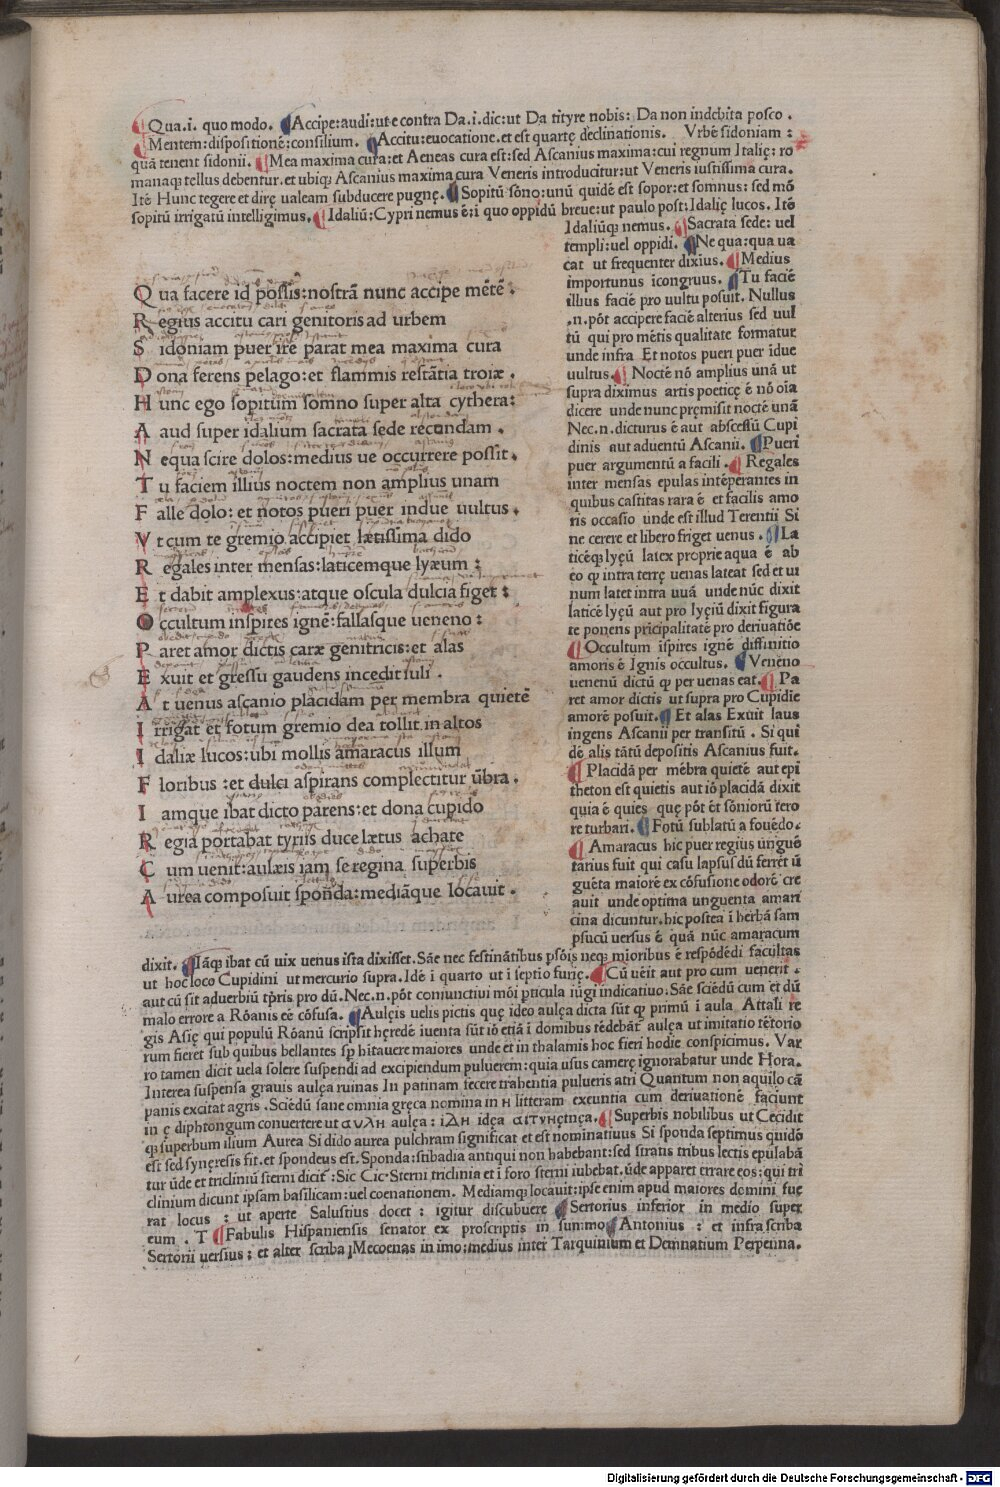 Qua.i. quo modo. Accipe:audi:ut e contra Da.i.dic:ut Da tityre nobis: Da non indebita posco.
Mentem:dispositionē:consilium. Accitu:euocatione.et est quartę declinationis. Vrbē sidoniam:
quā tenent sidonii. Mea maxima cura:et Aeneas cura est:sed Ascanius maxima:cui regnum Italię:ro
manaq; tellus debentur.et ubiq; Ascanius maxima cura Veneris introducitur:ut Veneris iustissima cura.
Itē Hunc tegere et dirę ualeam subducere pugnę. Sopitū sōno:unū quidē est sopor:et somnus: sed mō
sopitū irrigatū intelligimus. Idaliū:Cypri nemus ē:i quo oppidū breue:ut paulo post:Idalię lucos. Itē
Idaliūq; nemus. Sacrata sede: uel
templi:uel oppidi. Ne qua:qua ua
cat ut frequenter dixius. Medius
importunus icongruus. Tu faciē
illius faciē pro uultu posuit. Nullus
.n.pōt accipere faciē alterius sed uul
tū qui pro mētis qualitate formatur
unde infra Et notos pueri puer idue
uultus. Noctē nō amplius unā ut
supra diximus artis poeticę ē nō oia
dicere unde nunc pręmisit noctē unā
Nec.n.dicturus ē aut abscessū Cupi
dinis aut aduentū Ascanii. Pueri
puer argumentū a facili. Regales
inter mensas epulas intēperantes in
quibus castitas rara ē et facilis amo
ris occasio unde est illud Terentii Si
ne cerere et libero friget uenus. La
ticēq; lyęū latex proprie aqua ē ab
eo q; intra terrę uenas lateat sed et ui
num latet intra uuā unde nūc dixit
laticē lyęū aut pro lyęiū dixit figura
te ponens pricipalitatē pro deriuatiōe
Occultum ispires ignē diffinitio
amoris ē Ignis occultus. Veneno
uenenū dictū q; per uenas eat. Pa
ret amor dictis ut supra pro Cupidie
amorē posuit. Et alas Exuit laus
ingens Ascanii per transitū. Si qui
dē alis tātū depositis Ascanius fuit.
Placidā per mēbra quietē aut epi
theton est quietis aut iō placidā dixit
quia ē quies quę pōt ēt sōniorū tero
re turbari. Fotū sublatū a fouēdo.
Amaracus hic puer regius unguē
tarius fuit qui casu lapsus dū ferret ū
guēta maiorē ex cōfusione odorē cre
auit unde optima unguenta amari
cina dicuntur.hic postea i herbā sam
psucū uersus ē quā nūc amaracum
Q ua facere id possis:nostrā nunc accipe mētē:
R egius accitu cari genitoris ad urbem
S idoniam puer ire parat mea maxima cura
D ona ferens pelago:et flammis restātia troiæ.
H unc ego sopitum somno super alta cythera:
A aud super idalium sacrata sede recondam.
N equa scire dolos:medius ue occurrere possit.
T u faciem illius noctem non amplius unam
F alle dolo: et notos pueri puer indue uultus.
V t cum te gremio accipiet lætissima dido
R egales inter mensas:laticemque lyæum:
E t dabit amplexus:atque oscula dulcia figet:
O ccultum inspires ignē:fallasque ueneno:
P aret amor dictis caræ genitricis:et alas
E xuit et gressu gaudens incedit iuli.
A t uenus ascanio placidam per membra quietē
I rrigat et fotum gremio dea tollit in altos
I daliæ lucos:ubi mollis amaracus illum
F loribus:et dulci aspirans complectitur ūbra.
I amque ibat dicto parens:et dona cupido
R egia portabat tyriis duce lætus achate
C um uenit:aulæis iam se regina superbis
A urea composuit sponda:mediāque locauit.
dixit. Iāq; ibat cū uix uenus ista dixisset. Sāe nec festinātibus psōis neq; mioribus ē respōdēdi facultas
ut hoc loco Cupidini ut mercurio supra.Idē i quarto ut i septio furię. Cū uēit aut pro cum uenerit.
aut cū sit aduerbiū tp̄ris pro dū.Nec.n.pōt coniunctiui mōi pticula iūgi indicatiuo.Sāe sciēdū cum et dū
malo errore a Rōanis eē cōfusa. Aulęis uelis pictis quę ideo aulęa dicta sūt q; primū i aula Attali re
gis Asię qui populū Rōanū scripsit hęredē iuenta sūt iō etiā i domibus tēdebāt aulęa ut imitatio tētorio
rum fieret sub quibus bellantes sp̄ hītauere maiores unde et in thalamis hoc fieri hodie conspicimus. Var
ro tamen dicit uela solere suspendi ad excipiendum puluerem:quia usus camerę ignorabatur unde Hora.
Interea suspensa grauis aulęa ruinas In patinam fecere trahentia pulueris atri Quantum non aquilo cā
panis excitat agris.Sciēdū sane omnia gręca nomina in н litteram exeuntia cum deriuationē faciunt
in ę diphtongum conuertere ut αυλн aulęa: ιΔн idęa αιτυнętnęa. Superbis nobilibus ut Cecidit
q; superbum ilium Aurea Si dido aurea pulchram significat et est nominatiuus Si sponda septimus quidē
est sed synęresis fit.et spondeus est.Sponda:stibadia antiqui non habebant:sed stratis tribus lectis epulabā
tur ūde et tricliniū sterni dicit̄:Sic Cic.Sterni triclinia et i foro sterni iubebat.ūde apparet errare eos:qui tri
clinium dicunt ipsam basilicam:uel coenationem. Mediamq; locauit:ipse enim apud maiores domini fue
rat locus : ut aperte Salustius docet : igitur discubuere Sertorius inferior in medio super
eum . T Fabulis Hispaniensis senator ex proscriptis in summo Antonius : et infra scriba
Sertorii uersius: et alter scriba Mecoenas in imo:medius inter Tarquinium et Domnatium Perpenna.
Digitalisierung gefördert durch die Deutsche Forschungsgemeinschaft - DFG